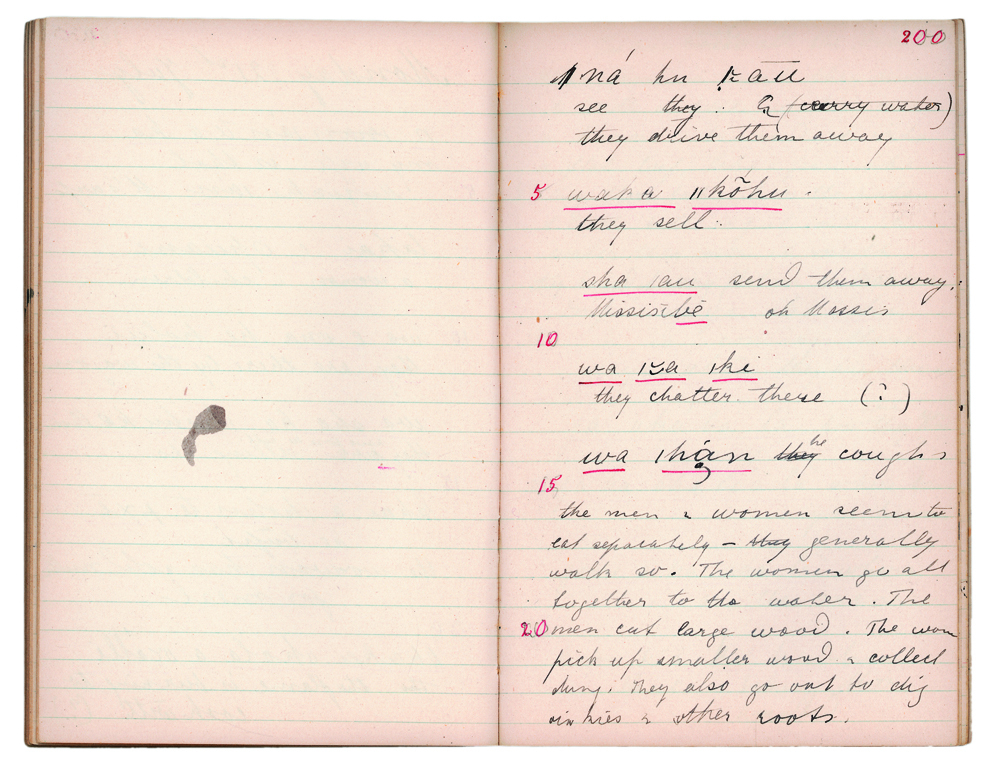 200
ná hu
see they. & (carry water)
they drive them away
5 waka ǁkõhu.
they sell.
sha ǀau send them away.
oh Massis
10
wa ǀki
they chatter there (?)
wa they he coughs
15
the men & women seem to
eat separately – they generally
walk so. The women go all
together to the water. The
20 men cut large wood. The wom
pick up smaller wood & collect
dung. They also go out to dig
uintjies & other roots.